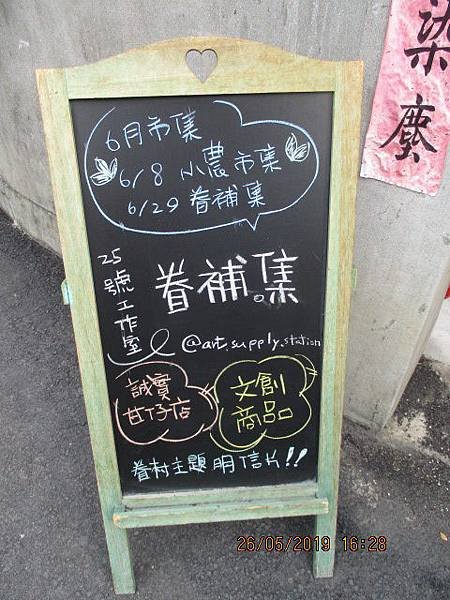 6月市集
6/8 小農市集
6/29 眷補集
25號工作室
眷補集
@art.supply.station
誠實
甘仔店
文創
商品
眷村主題 明信片!!
染塵
26/05/2019 16:28